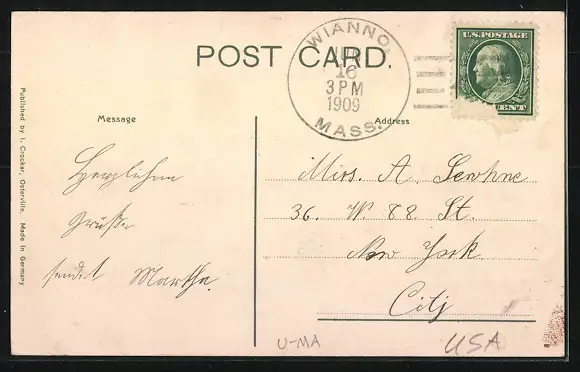 POST CARD.
WIANNO,
16
3 PM
1909
MASS.
U.S. POSTAGE
CENT
Published by I. Crocker, Osterville. Made in Germany
Message
Address
Herzlichen
Grüße
sendet Martha.
Mirs. A.
36. W. 88. St.
New York
City
U-MA
USA